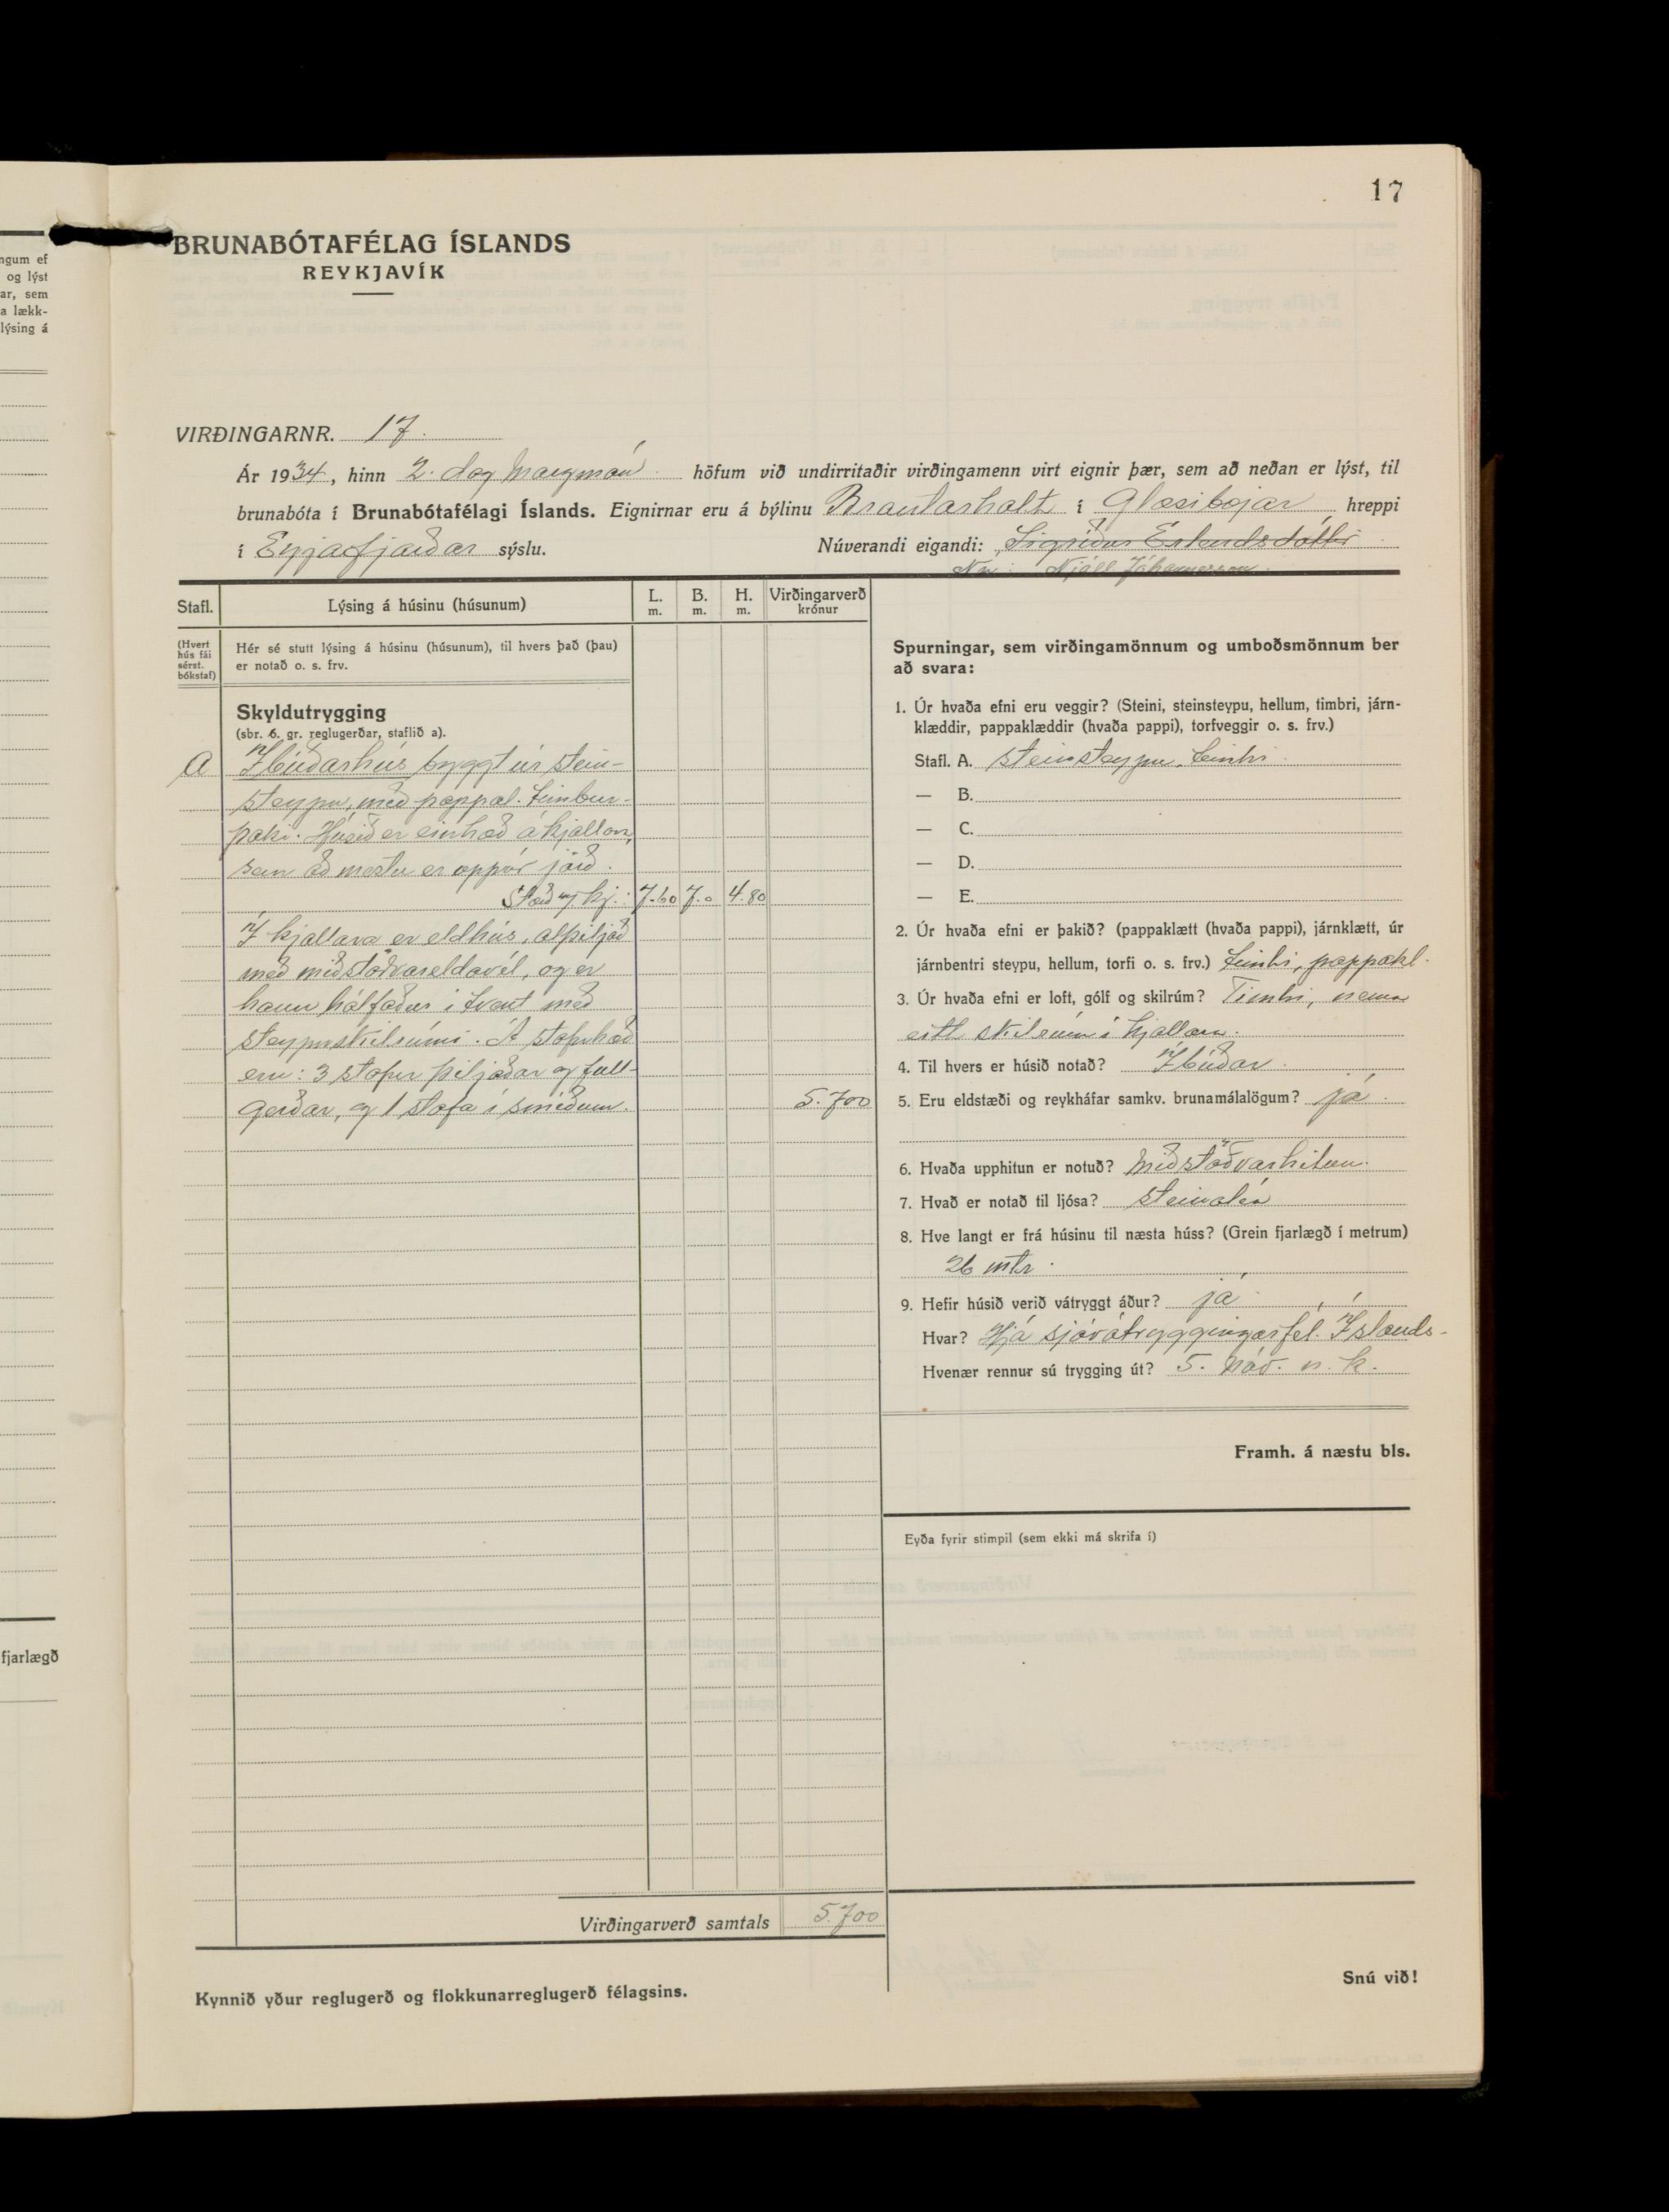 17
BRUNABÓTAFÉLAG ÍSLANDS
REYKJAVÍK
VIRÐINGARNR. 17.
Ár 1934, hinn 2. dag höfum við undirritaðir virðingamenn virt eignir þær, sem að neðan er lýst, til
brunabóta í Brunabótafélagi Íslands. Eignirnar eru á býlinu Brautarholt í Glæsibæjar hreppi
í Eyjafjarðar sýslu. Núverandi eigandi: Sigríður Erlendsdóttir
Nú: Njáll Jóhannesson.
Stafl. Lýsing á húsinu (húsunum) L. m. B. m. H. m. Virðingarverð krónur
(Hvert hús fái sérst. bókstaf)
Hér sé stutt lýsing á húsinu (húsunum), til hvers það (þau)
er notað o. s. frv.
Skyldutrygging
(sbr. 6. gr. reglugerðar, staflið a).
A Íbúðarhús byggt úr stein-
steypu, með pappal. timbur-
þaki. Húsið er einhæð á kjallara,
sem að mestu er uppúr jörð.
Hæð og kj.: 7.60 7.0 4.80
Í kjallara er eldhús, alþiljað
með miðstöðvareldavél, og er
hann hálfaður í tvent með
steypuskilrúmi. Á stofuhæð
eru: 3 stofur þiljaðar og full-
gerðar, og 1 stofa í smíðum. 5.700
Virðingarverð samtals 5.700
Kynnið yður reglugerð og flokkunarreglugerð félagsins.
Spurningar, sem virðingamönnum og umboðsmönnum ber
að svara:
1. Úr hvaða efni eru veggir? (Steini, steinsteypu, hellum, timbri, járn-
klæddir, pappaklæddir (hvaða pappi), torfveggir o. s. frv.)
Stafl. A. steinsteypu, timbri
— B.
— C.
— D.
— E.
2. Úr hvaða efni er þakið? (pappaklætt (hvaða pappi), járnklætt, úr
járnbentri steypu, hellum, torfi o. s. frv.) timbri, pappakl.
3. Úr hvaða efni er loft, gólf og skilrúm? Timbri, nema
eitt skilrúm í kjallara.
4. Til hvers er húsið notað? Íbúðar.
5. Eru eldstæði og reykháfar samkv. brunamálalögum? já.
6. Hvaða upphitun er notuð? Miðstöðvarhitun.
7. Hvað er notað til ljósa? steinolía
8. Hve langt er frá húsinu til næsta húss? (Grein fjarlægð í metrum)
26 mtr.
9. Hefir húsið verið vátryggt áður? já
Hvar? Hjá sjóvátryggingarfél. Íslands-
Hvenær rennur sú trygging út? 5. Nóv. n. k.
Framh. á næstu bls.
Eyða fyrir stimpil (sem ekki má skrifa í)
Snú við!
ngum ef
og lýst
ar, sem
a lækk-
lýsing á
fjarlægð